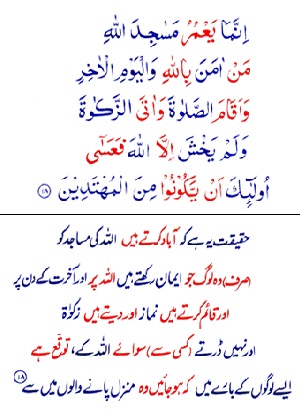 اِنَّمَا يَعْمُرُ مَسٰجِدَ اللّٰهِ
مَنْ اٰمَنَ بِاللّٰهِ وَالْيَوْمِ الْاٰخِرِ
وَاَقَامَ الصَّلٰوةَ وَاٰتَى الزَّكٰوةَ
وَلَمْ يَخْشَ اِلَّا اللّٰهَ فَعَسٰٓى
اُولٰٓئِكَ اَنْ يَّكُوْنُوْا مِنَ الْمُهْتَدِيْنَ ۱۸
حقیقت یہ ہے کہ آباد کرتے ہیں اللہ کی مساجد کو
(صرف) وہ لوگ جو ایمان رکھتے ہیں اللہ پر اور آخرت کے دن پر
اور قائم کرتے ہیں نماز اور دیتے ہیں زکوٰۃ
اور نہیں ڈرتے (کسی سے) سوائے اللہ کے، توقّع ہے
ایسے لوگوں کے بارے میں کہ ہو جائیں وہ منزل پانے والوں میں سے ۱۸